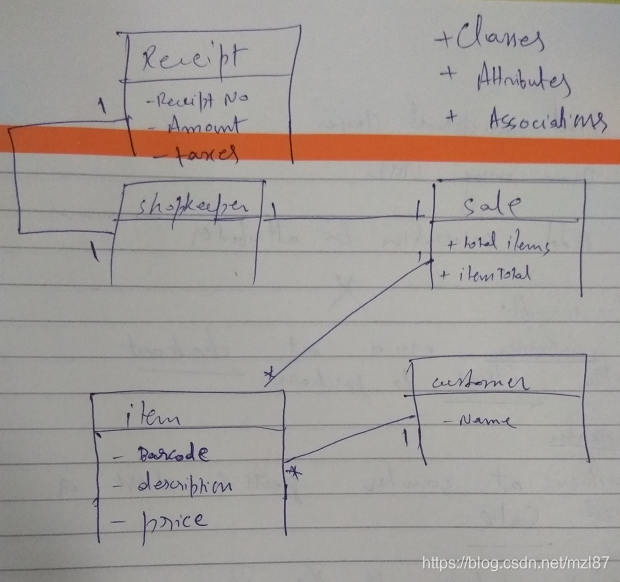 Receipt
- Receipt No
- Amount
- taxes
+ Classes
+ Attributes
+ Associations
1
1
shopkeeper
1
1
sale
+ total items
+ itemTotal
1
*
item
- Barcode
- description
- price
*
1
customer
- Name
https://blog.csdn.net/mzl87